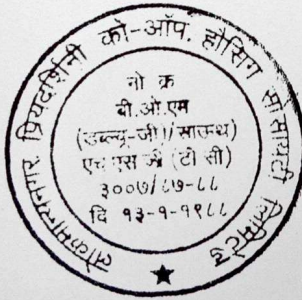 लोकमान्यनगर प्रियदर्शिनी को-ऑप. हौसिंग सोसायटी लिमिटेड
नों क्र
बी.ओ.एम
(डब्ल्यू-जी)/साऊथ)
एच एस जी (टी सी)
३००७/८७-८८
दि १३-१-१९८८